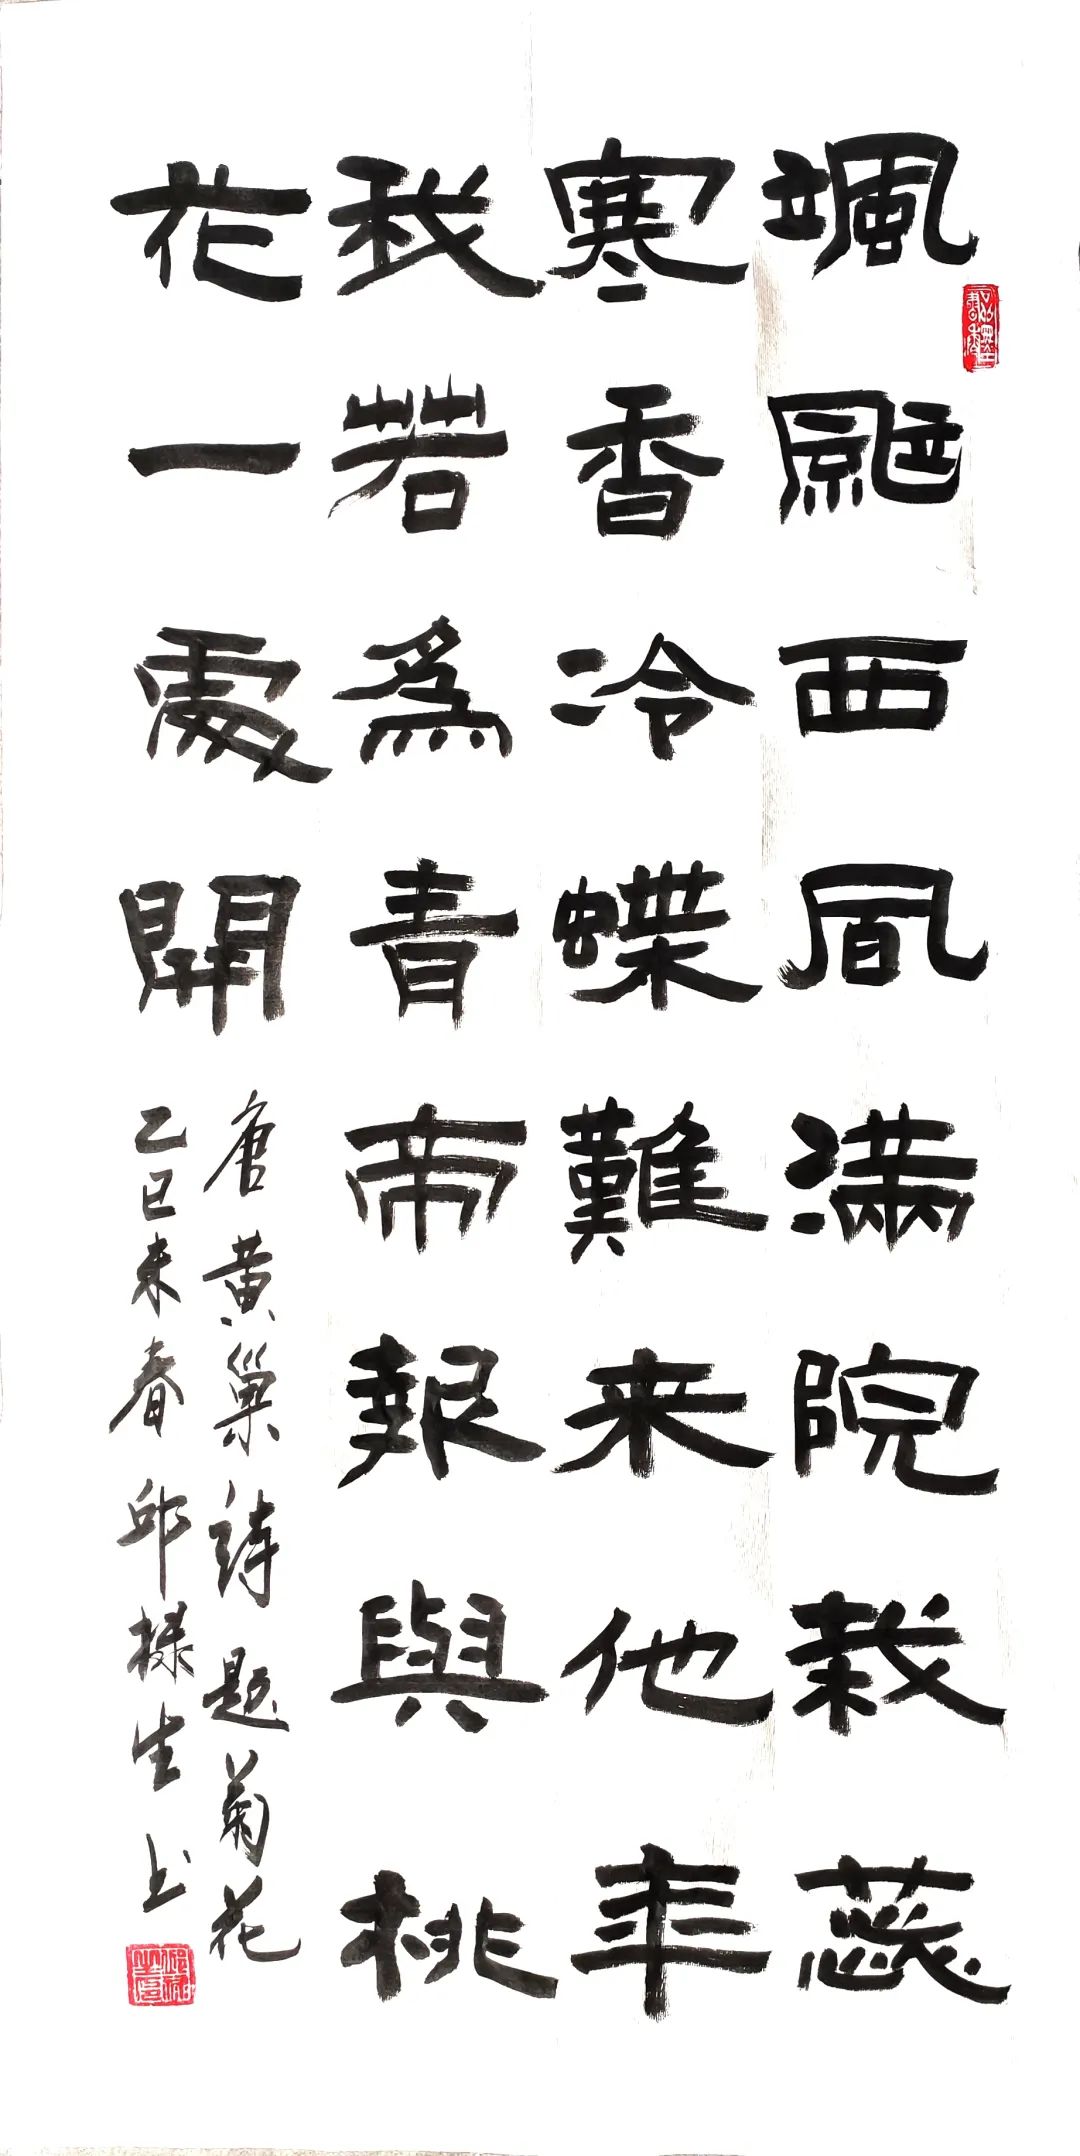 颯颯西風满院栽蕊
寒香冷蝶難来他年
我若爲青帝報與桃
花一處開
唐黄巢詩题菊花
乙巳末春邱禄生书